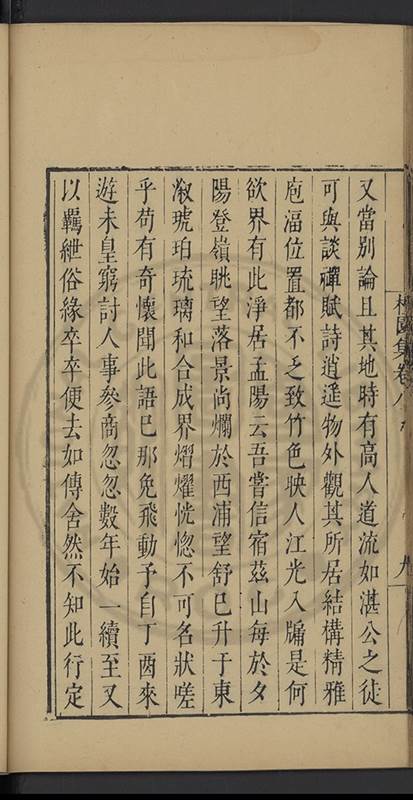 又當別論且其地時有高人道流如湛公之徒
可與談禪賦詩逍遥物外觀其所居結構精雅
庖湢位置都不乏致竹色映人江光入牖是何
欲界有此淨居孟陽云吾嘗信宿茲山每於夕
陽登嶺眺望落景尚爛於西浦望舒巳升于東
溆琥珀琉璃和合成界熠燿恍惚不可名狀嗟
乎苟有奇懷聞此語巳那免飛動予自丁酉來
遊未皇窮討人事參商忽忽數年始一續至又
以羈紲俗緣卒卒便去如傳舍然不知此行定
園集卷八
九